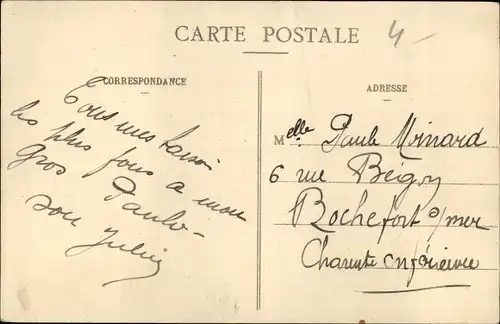 CARTE POSTALE
4
CORRESPONDANCE
Tous mes baisers
les plus fous a mon
gros Paulo -
son Julien
ADRESSE
Melle Paule Moinard
6 rue Bégon
Rochefort s/mer
Charente Inférieure